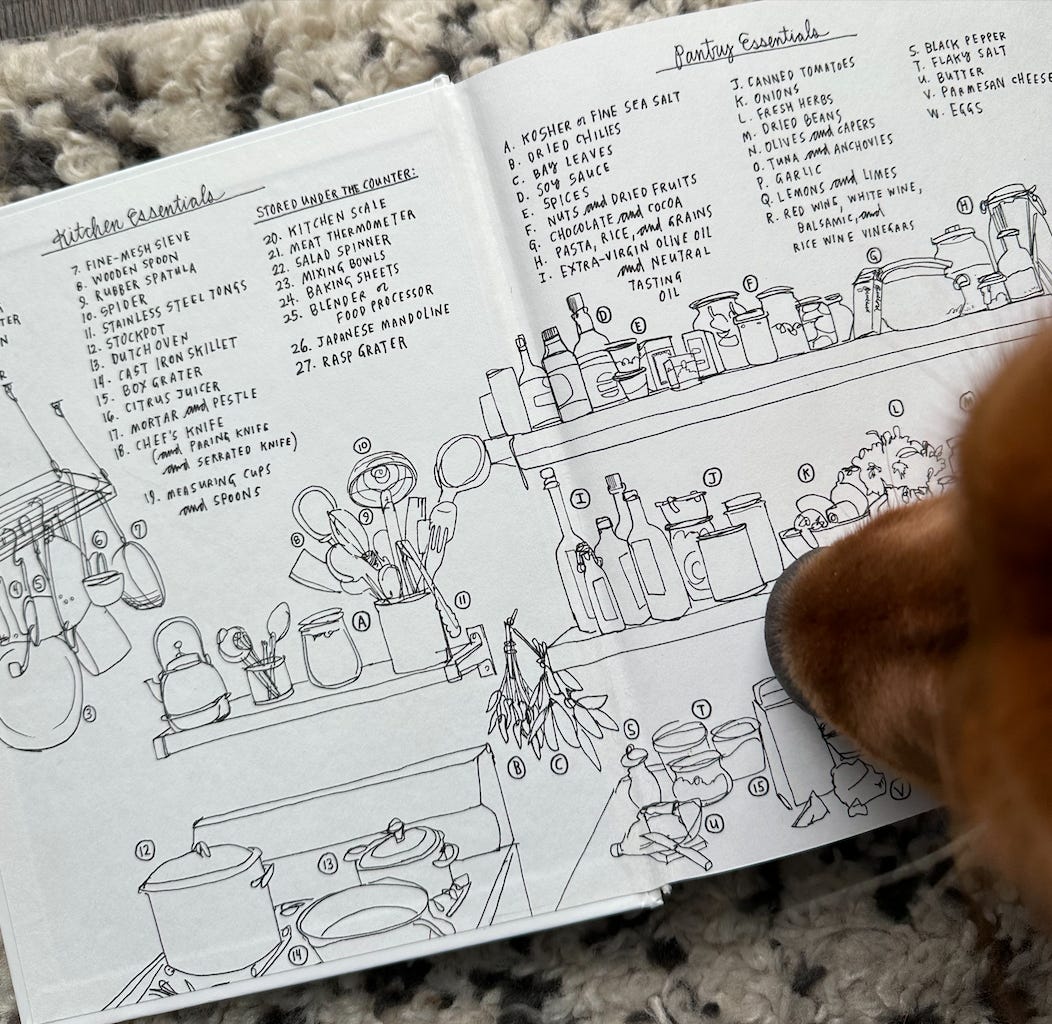 Kitchen Essentials
7. FINE-MESH SIEVE
8. WOODEN SPOON
9. RUBBER SPATULA
10. SPIDER
11. STAINLESS STEEL TONGS
12. STOCKPOT
13. DUTCH OVEN
14. CAST IRON SKILLET
15. BOX GRATER
16. CITRUS JUICER
17. MORTAR and PESTLE
18. CHEF'S KNIFE
(and PARING KNIFE
and SERRATED KNIFE)
19. MEASURING CUPS
and SPOONS
STORED UNDER THE COUNTER:
20. KITCHEN SCALE
21. MEAT THERMOMETER
22. SALAD SPINNER
23. MIXING BOWLS
24. BAKING SHEETS
25. BLENDER or
FOOD PROCESSOR
26. JAPANESE MANDOLINE
27. RASP GRATER
Pantry Essentials
A. KOSHER or FINE SEA SALT
B. DRIED CHILIES
C. BAY LEAVES
D. SOY SAUCE
E. SPICES
F. NUTS and DRIED FRUITS
G. CHOCOLATE and COCOA
H. PASTA, RICE, and GRAINS
I. EXTRA-VIRGIN OLIVE OIL
and NEUTRAL
TASTING
OIL
J. CANNED TOMATOES
K. ONIONS
L. FRESH HERBS
M. DRIED BEANS
N. OLIVES and CAPERS
O. TUNA and ANCHOVIES
P. GARLIC
Q. LEMONS and LIMES
R. RED WINE, WHITE WINE,
BALSAMIC, and
RICE WINE VINEGARS
S. BLACK PEPPER
T. FLAKY SALT
U. BUTTER
V. PARMESAN CHEESE
W. EGGS
H
G
F
E
D
L
M
K
J
I
10
9
8
7
6
5
4
3
A
11
B
C
S
T
15
V
U
12
13
14